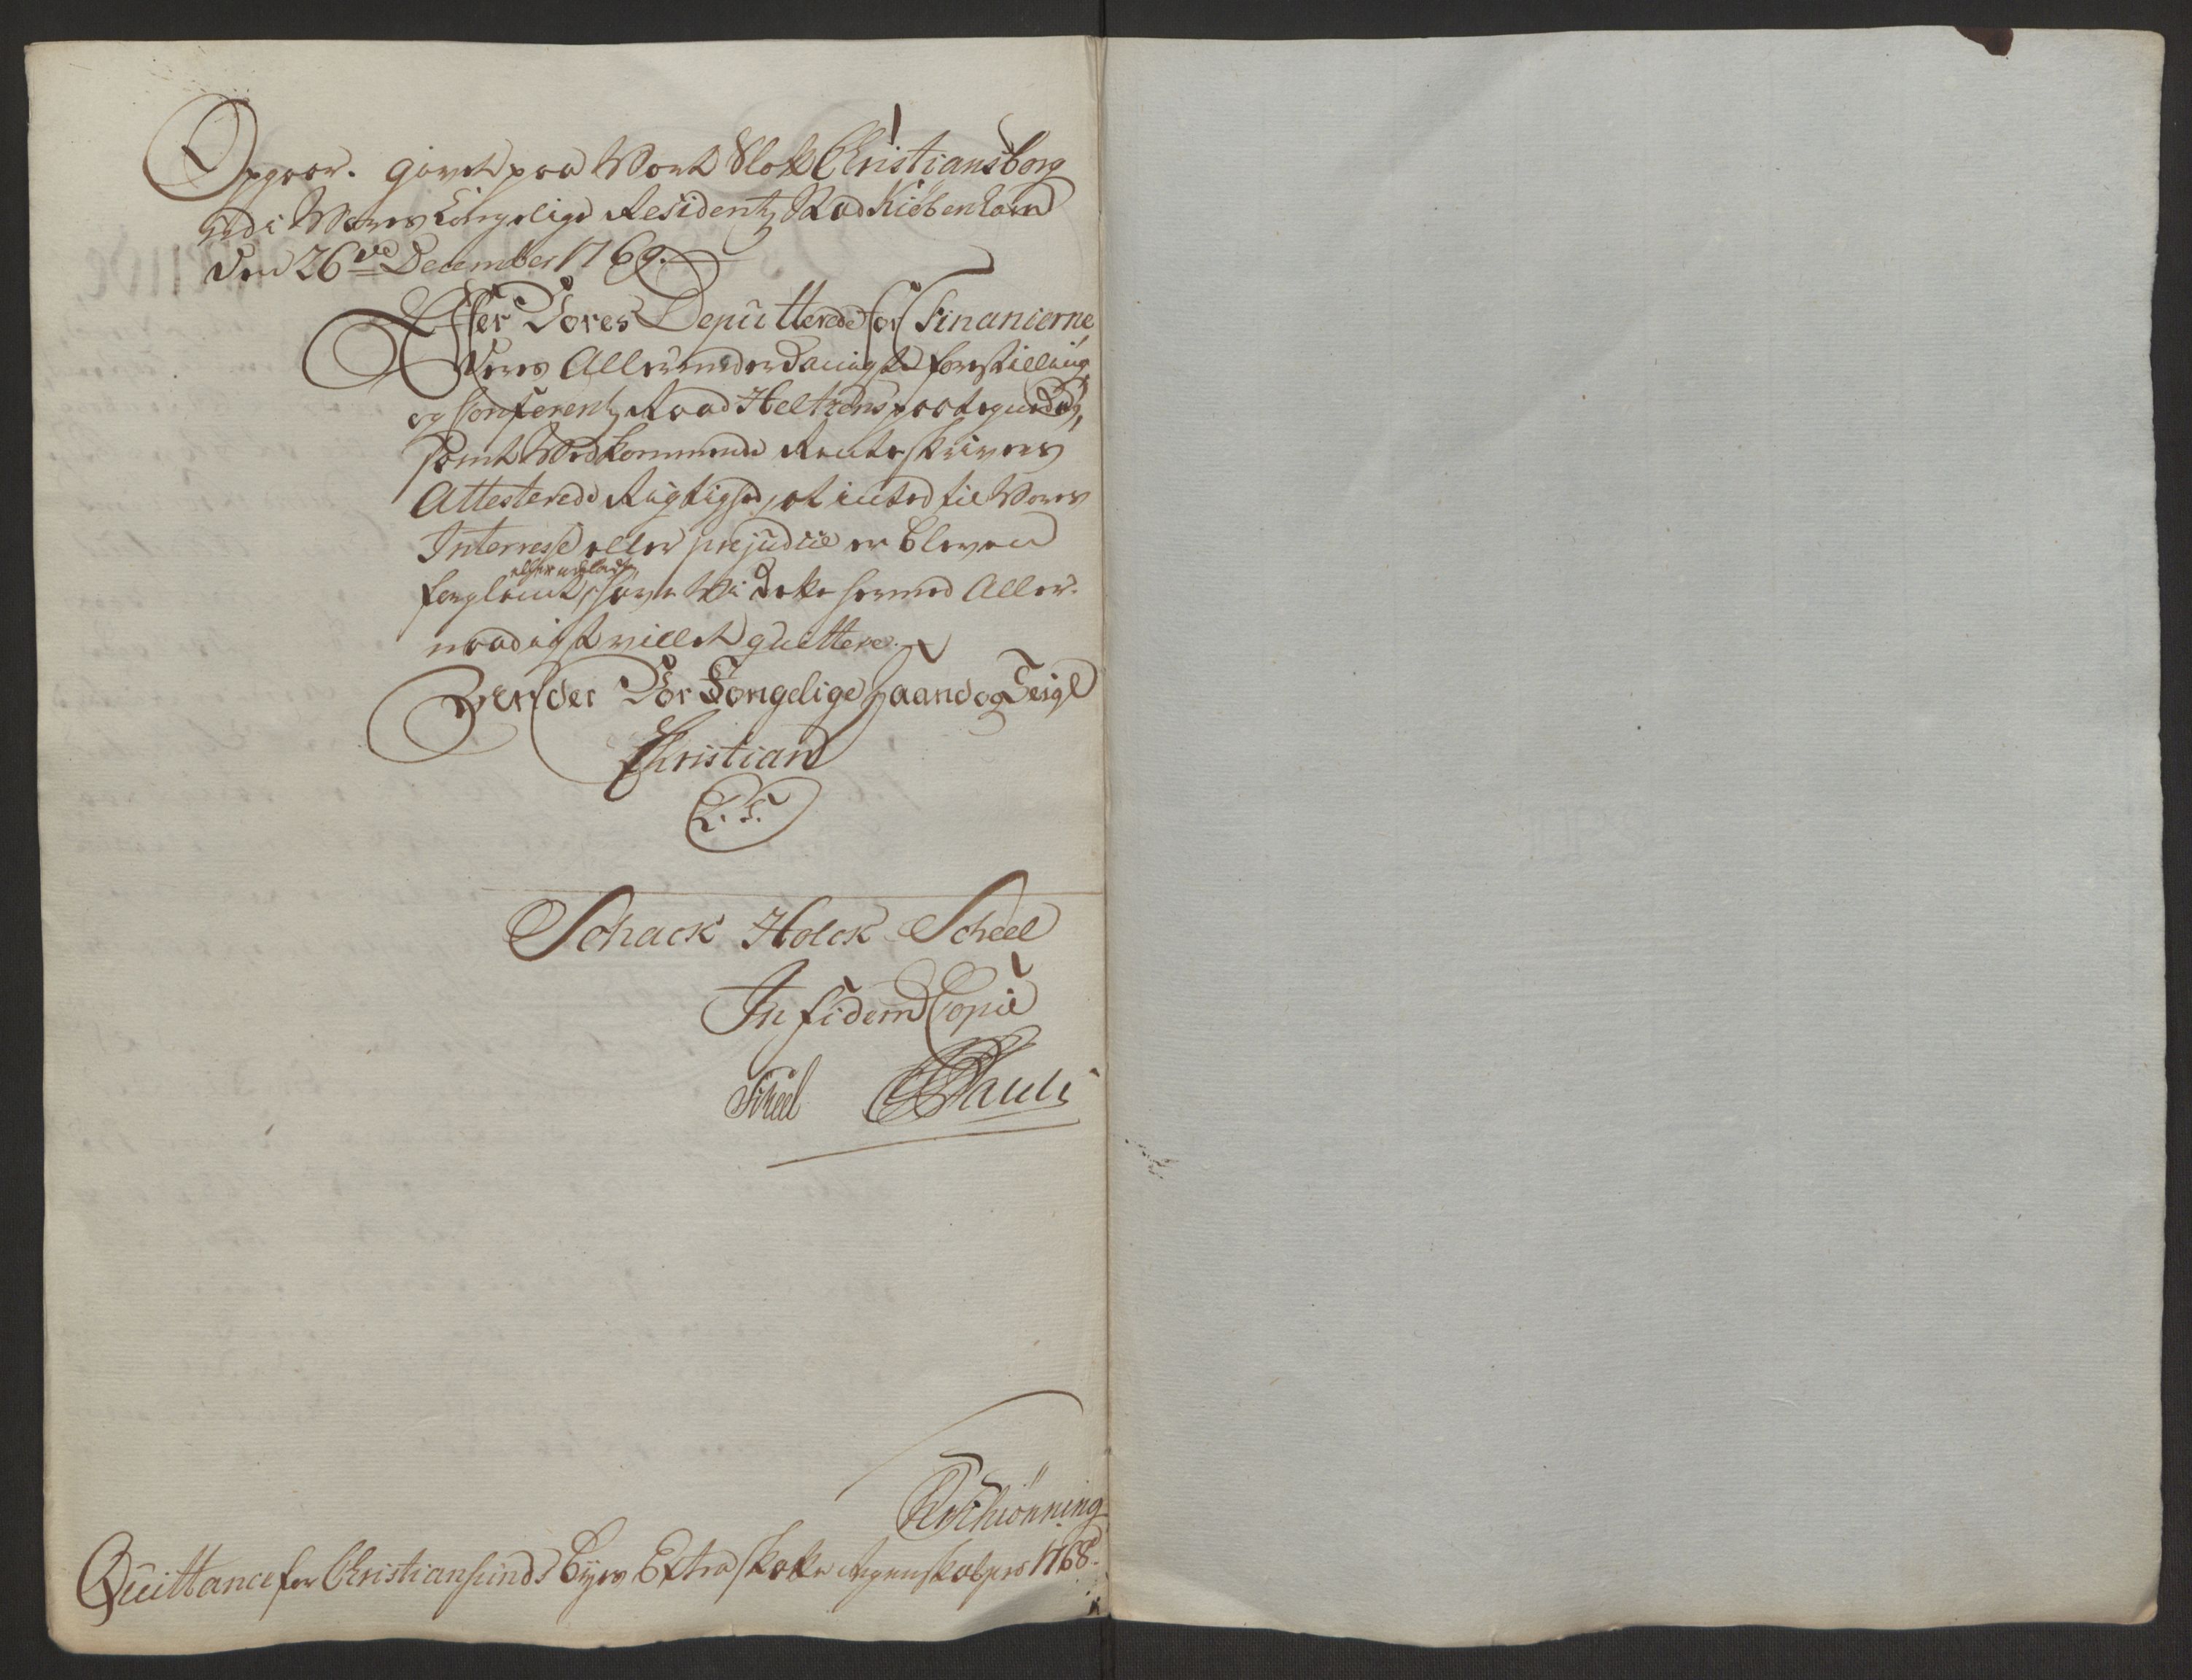 Opgoor. Givet paa Vort Slot Christiansborg
udi Vores Kongelige Residentz Stad Kiöbenhavn
den 26de December 1769.
Efter Vores Deputterede for Financierne
deres Allerunderdanigste forestilling,
og Conferentz Raad Heltzens paategnede,
samt Vedkommende Renteskrivers
Attesterede Rigtighed, at intet til Vores
Interresse eller prejudice er bleven
forglemt eller udeladt, have Vi dette hermed Aller-
naadigst villet quittere.
Under Vor Kongelige Haand og Seigl
Christian
L. S.
Schack Holck Scheel
In fidem Copiæ
Scheel Pauli
Schiönning
Quittance for Christiansunds Byes Extra skatte Regenskab pro 1768.